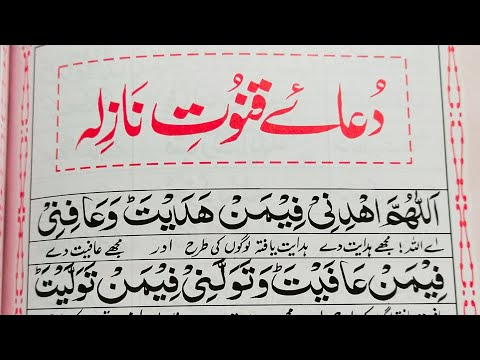 دُعائے قنُوتِ نَازِلہ
اَللّٰهُمَّ اهْدِنِیْ فِیْمَنْ هَدَیْتَ وَعَافِنِیْ
اے اللہ! مجھے ہدایت دے ہدایت یافتہ لوگوں کی طرح اور مجھے عافیت دے
فِیْمَنْ عَافَیْتَ وَتَوَلَّنِیْ فِیْمَنْ تَوَلَّیْتَ